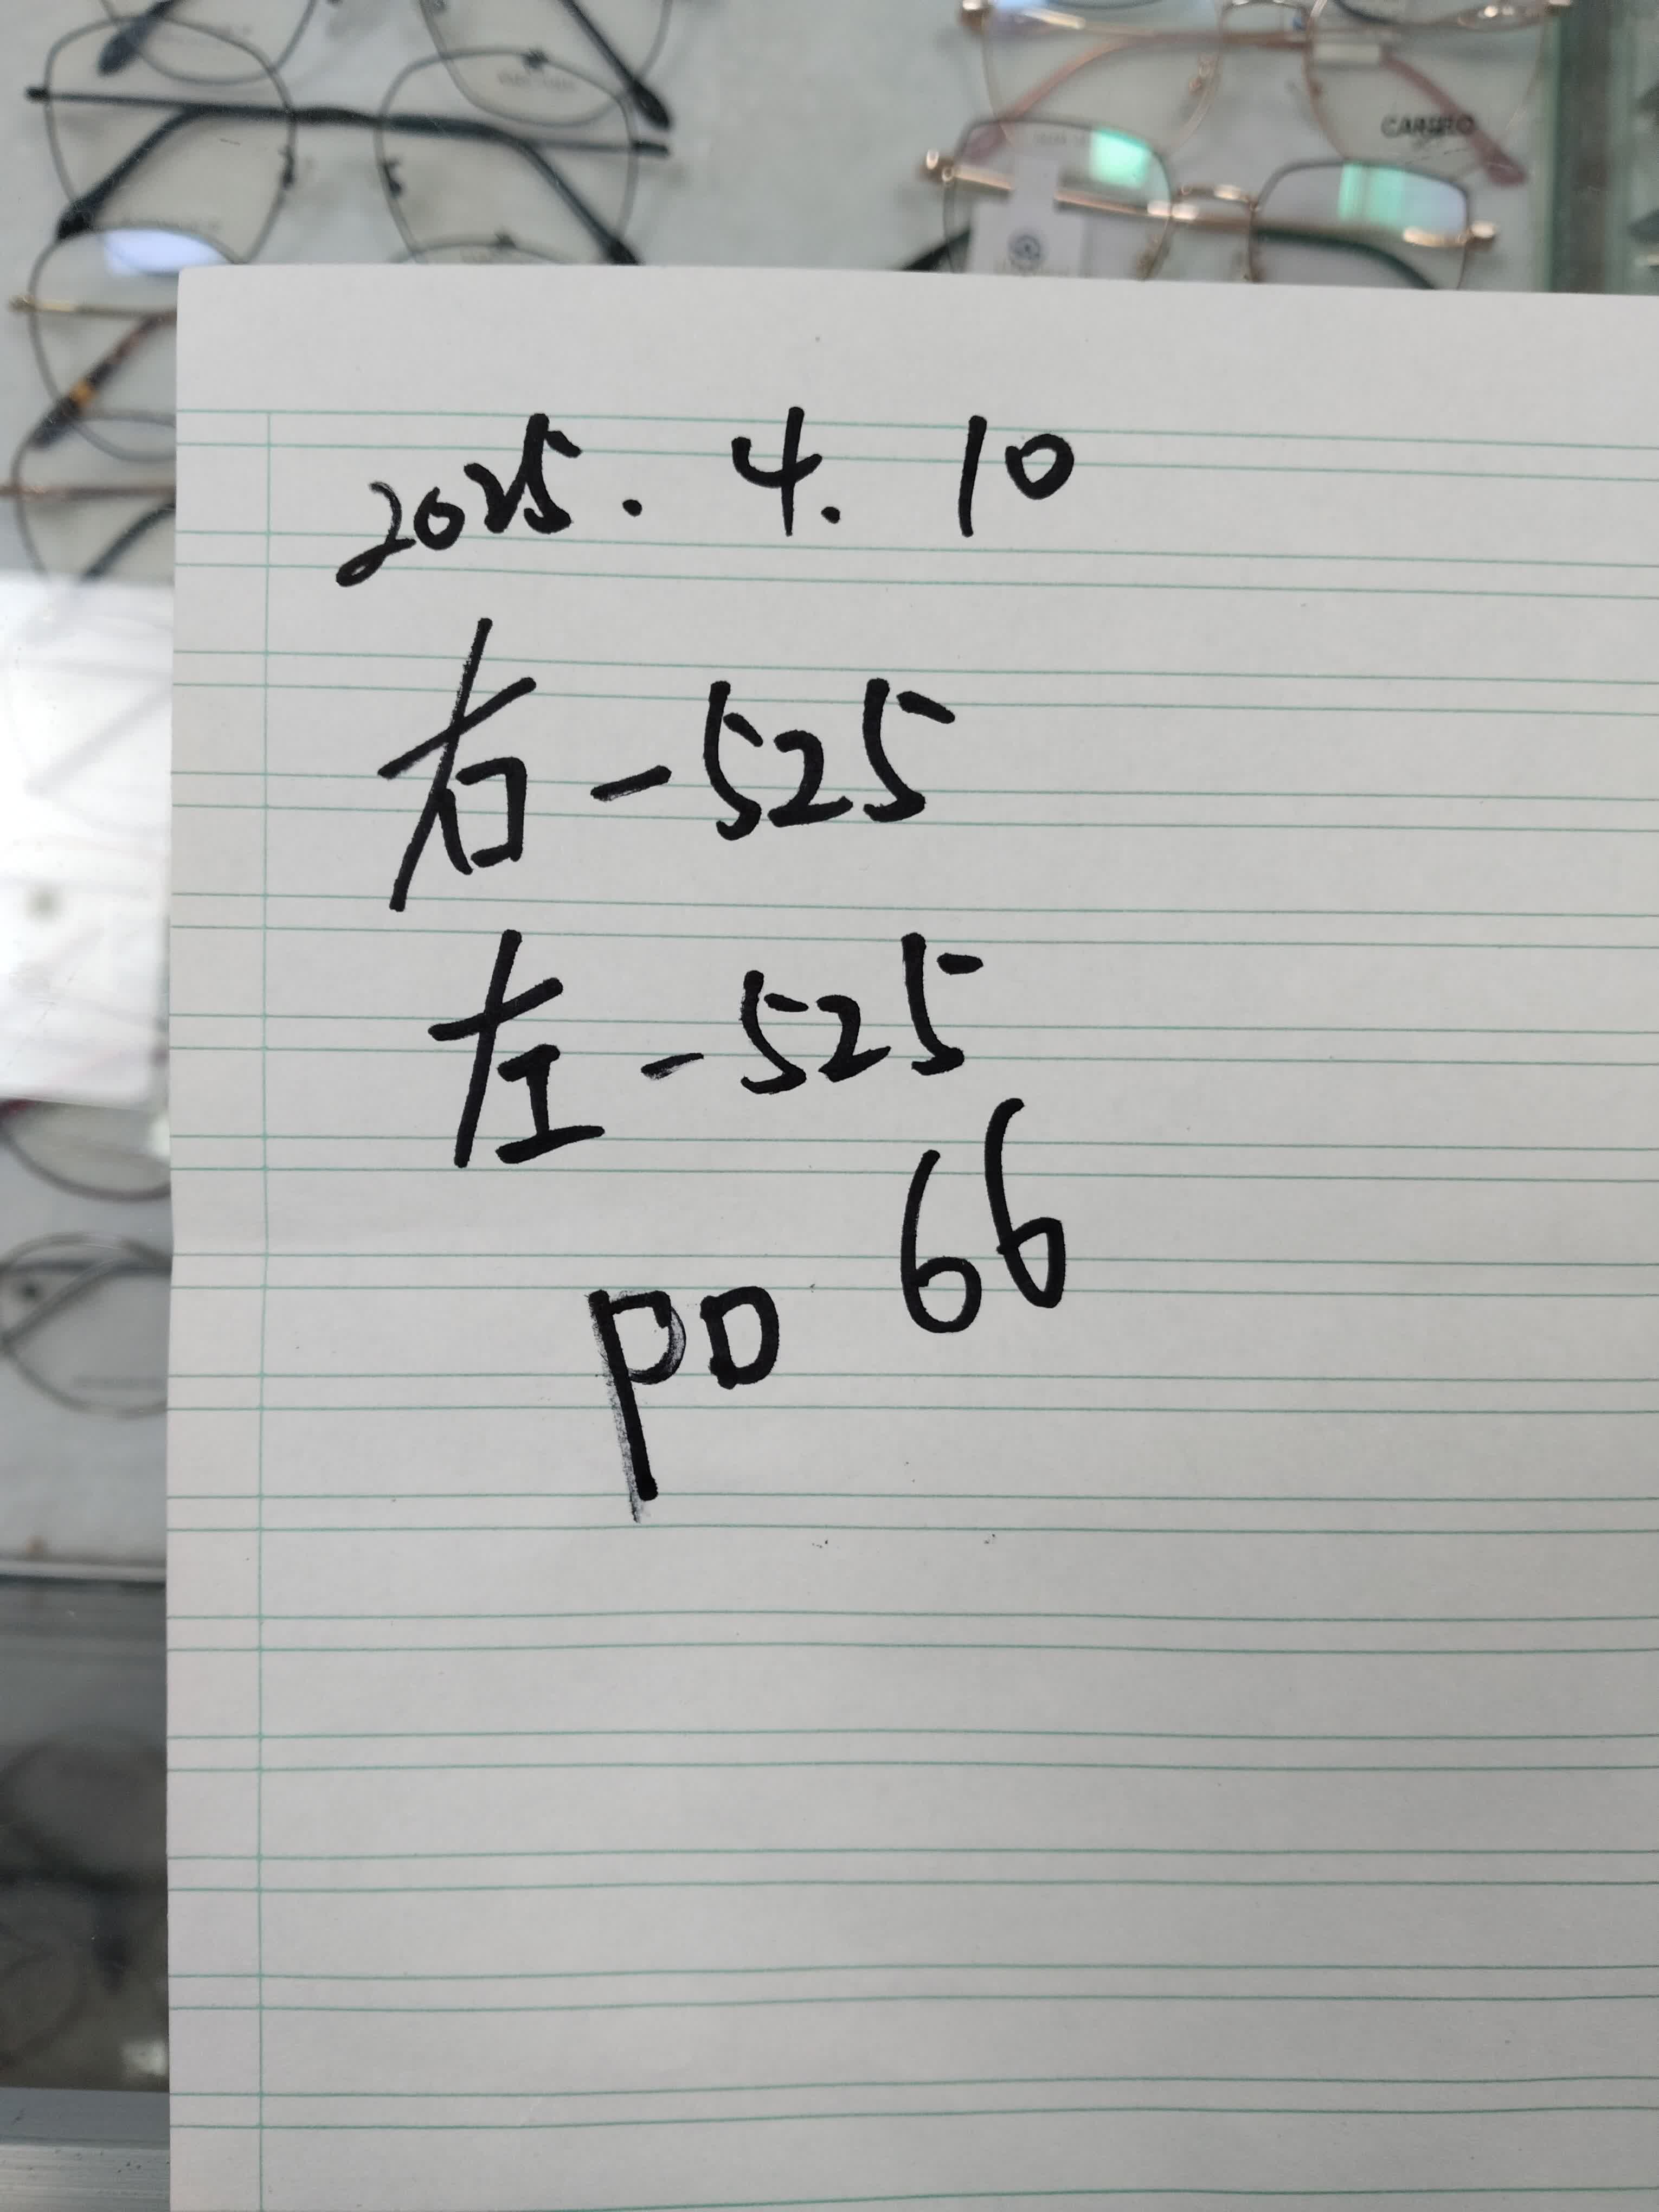 CARSLO
2025. 4. 10
右-525
左-525
PD 66